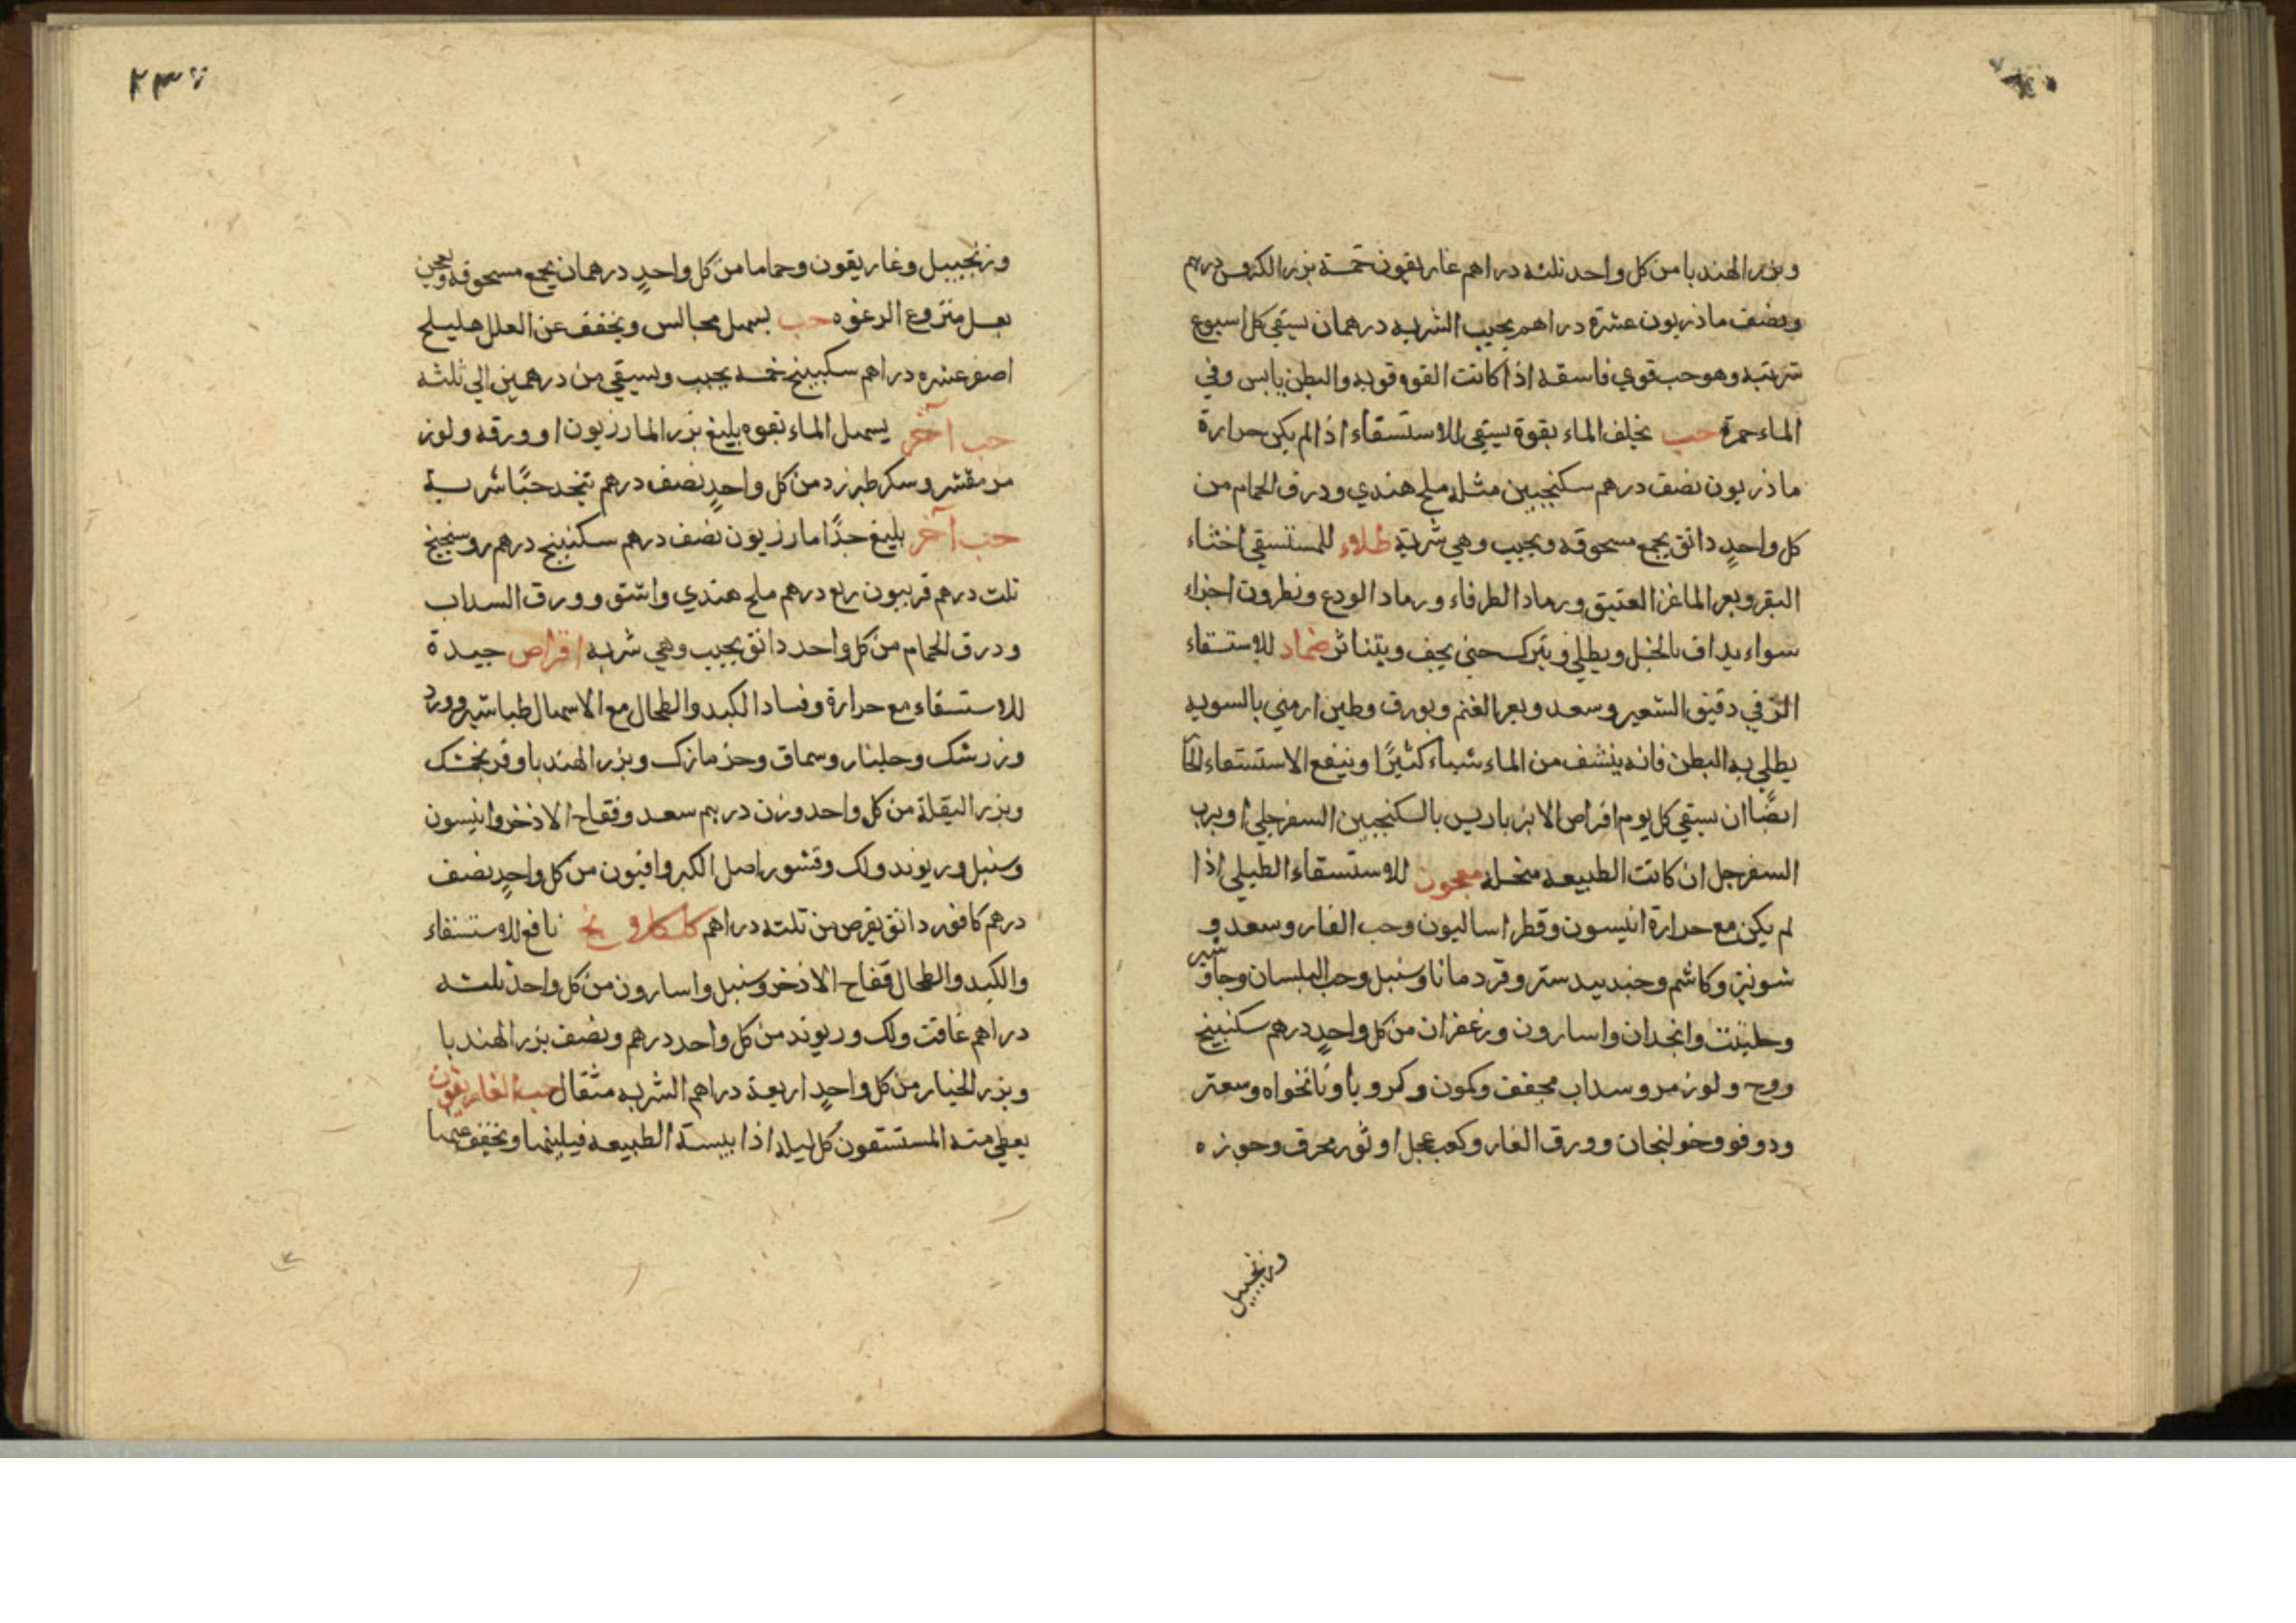 وبزر الهندبا من كل واحد ثلثه دراهم غاريقون خمسة بزر الكرفس درهم
ونصف ماذريون عشرة دراهم يحبب الشربه درهمان يسقي كل اسبوع
شربته وهو حب قوي فاسقه اذا كانت القوه قويه والبطن يابس وفي
الماء حمرة حب يخلف الماء بقوة يسقي للاستسقاء اذا لم يكن حرارة
ماذريون نصف درهم سكنجبين مثله ملح هندي وذرق الحمام من
كل واحدٍ دانق يجمع مسحوقه ويحبب وهي شربة طلاء للمستسقي اخثاء
البقر وبعر الماعز العتيق ورماد الطرفاء ورماد الودع ونطرون اجزاء
سواء يداف بالخل ويطلي ويترك حتي يجف ويتناثر ضماد للاستسقاء
الزقي دقيق الشعير وسعد وبعر الغنم وبورق وطين ارمني بالسويه
يطلي به البطن فانه ينشف من الماء شياء كثيرًا وينفع الاستسقاء
ايضًا ان يسقي كل يوم اقراص الانبرباريس بالسكنجبين السفرجلي او برب
السفرجل ان كانت الطبيعه منحله معجون للاستسقاء الطبلي اذا
لم يكن مع حرارة انيسون وقطراساليون وحب الغار وسعد و
شونيز وكاشم وجندبيدستر وقردمانا وسنبل وحب البلسان وجاوشير
وحلتيت وانجدان واسارون وزعفران من كل واحدٍ درهم سكنبينج
ووج ولوز مر وسداب مجفف وكمون وكرويا ونانخواه وسعتر
ودوفو وخولنجان وورق الغار وكعب عجل او ثور محرق وجوزه
وزنجبيل
٢٣٧
وزنجبيل وغاريقون وحماما من كل واحدٍ درهمان يجمع مسحوقه ويعجن
بعسل منزوع الرغوه حب يسهل مجالس ويخفف عن العلل هليلج
اصفر عشره دراهم سكبينج خمسه يحبب ويسقي من درهمين الي ثلثه
حب آخر يسهل الماء بقوه بليغ بزر المازريون او ورقه ولوز
مر مقشر وسكر طبرزد من كل واحدٍ نصف درهم يتخد حبًا شربة
حب آخر بليغ جدًا مازريون نصف درهم سكنبينج درهم روسختج
ثلث درهم فربيون ربع درهم ملح هندي واشق وورق السداب
وذرق الحمام من كل واحد دانق يحبب وهي شربه اقراص جيدة
للاستسقاء مع حرارة وفساد الكبد والطحال مع الاسهال طباشير وورد
وزرشك وجلنار وسماق وجزمازك وبزر الهندبا وفرنجمشك
وبزر البقلة من كل واحد وزن درهم سعد وفقاح الاذخر وانيسون
وسنبل وريوند ولك وقشور اصل الكبر وافيون من كل واحدٍ نصف
درهم كافور دانق يقرص من ثلثه دراهم كلكلانج نافع للاستسقاء
والكبد والطحال فقاح الاذخر وسنبل واسارون من كل واحد ثلثه
دراهم غافت ولك وريوند من كل واحد درهم ونصف بزر الهندبا
وبزر الخيار من كل واحدٍ اربعة دراهم الشربه مثقال حب الغاريقون
يعطي منه المستسقون كل ليله اذا يبست الطبيعه فيلينها ويخفف عنها